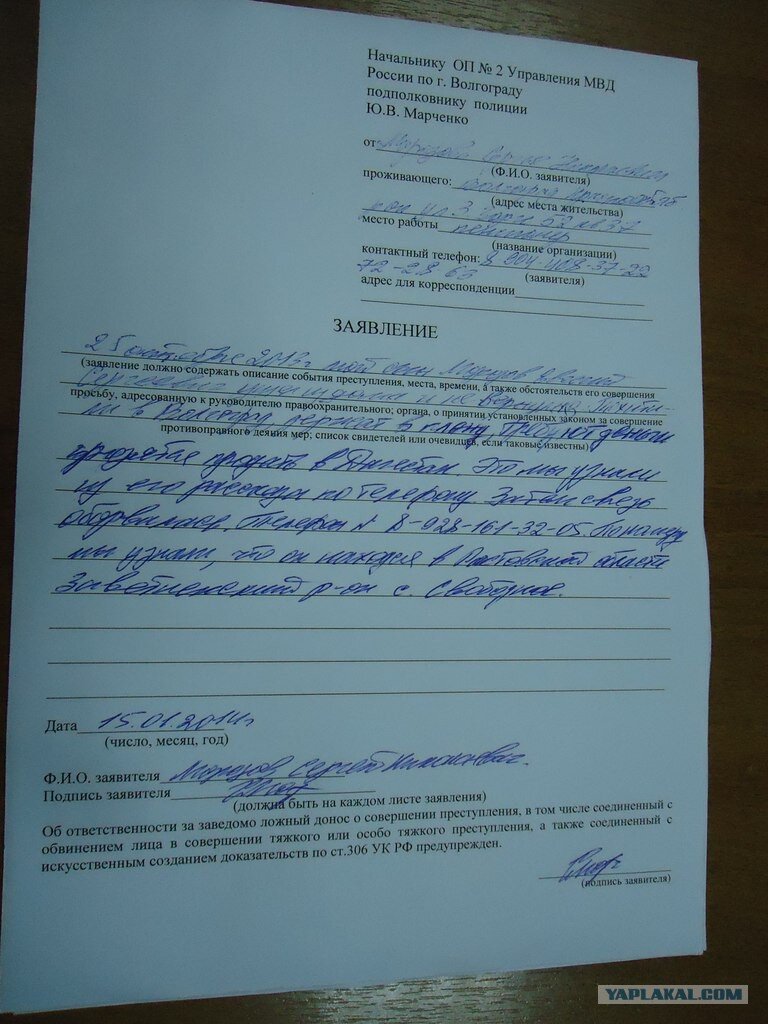 Начальнику ОП № 2 Управления МВД
России по г. Волгограду
подполковнику полиции
Ю.В. Марченко
от Морозов Сергей Николаевич
(Ф.И.О. заявителя)
проживающего:
(адрес места жительства)
место работы пенсионер
(название организации)
контактный телефон: 8 904-408-37-22
(заявителя)
72-28 63
адрес для корреспонденции
ЗАЯВЛЕНИЕ
25 октября 2013г мой сын Морозов
(заявление должно содержать описание события преступления, места, времени, а также обстоятельств его совершения
Сергеевич ушёл из дома и не вернулся. Похити-
просьбу, адресованную к руководителю правоохранительного; органа, о принятии установленных законом за совершение
ли в Волгограде, держат в плену,
противоправного деяния мер; список свидетелей или очевидцев, если таковые известны)
продать в Дагестан. Это мы узнали
из его рассказа по телефону. Затем связь
оборвалась. Телефон № 8-928-161-32-05.
мы узнали, что он находится в Ростовской области
Заветненский р-он с. Свободное.
Дата 15.01.2014г
(число, месяц, год)
Ф.И.О. заявителя Морозов Сергей Николаевич.
Подпись заявителя
(должна быть на каждом листе заявления)
Об ответственности за заведомо ложный донос о совершении преступления, в том числе соединенный с
обвинением лица в совершении тяжкого или особо тяжкого преступления, а также соединенный с
искусственным созданием доказательств по ст.306 УК РФ предупрежден.
(подпись заявителя)
YAPLAKAL.COM